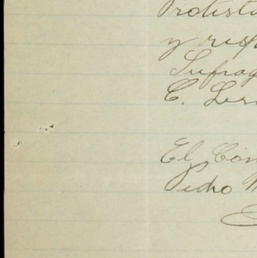 Protesta
y resp
Sufrag
C. Ler
El Con
Pedro M